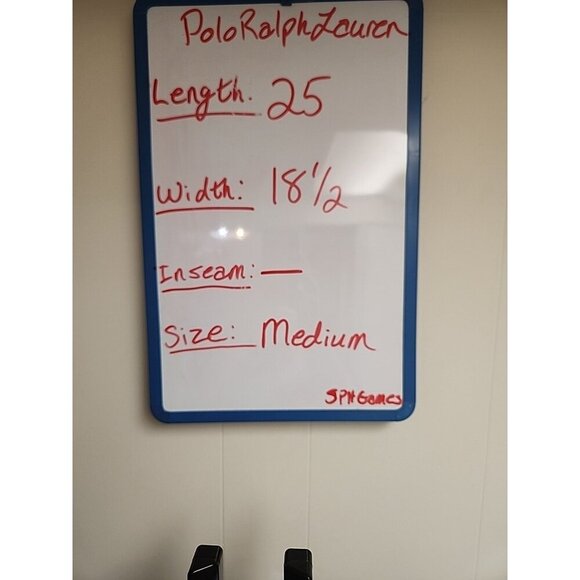 Polo Ralph Lauren
Length. 25
Width: 18 1/2
Inseam: —
Size: Medium
SPH Games